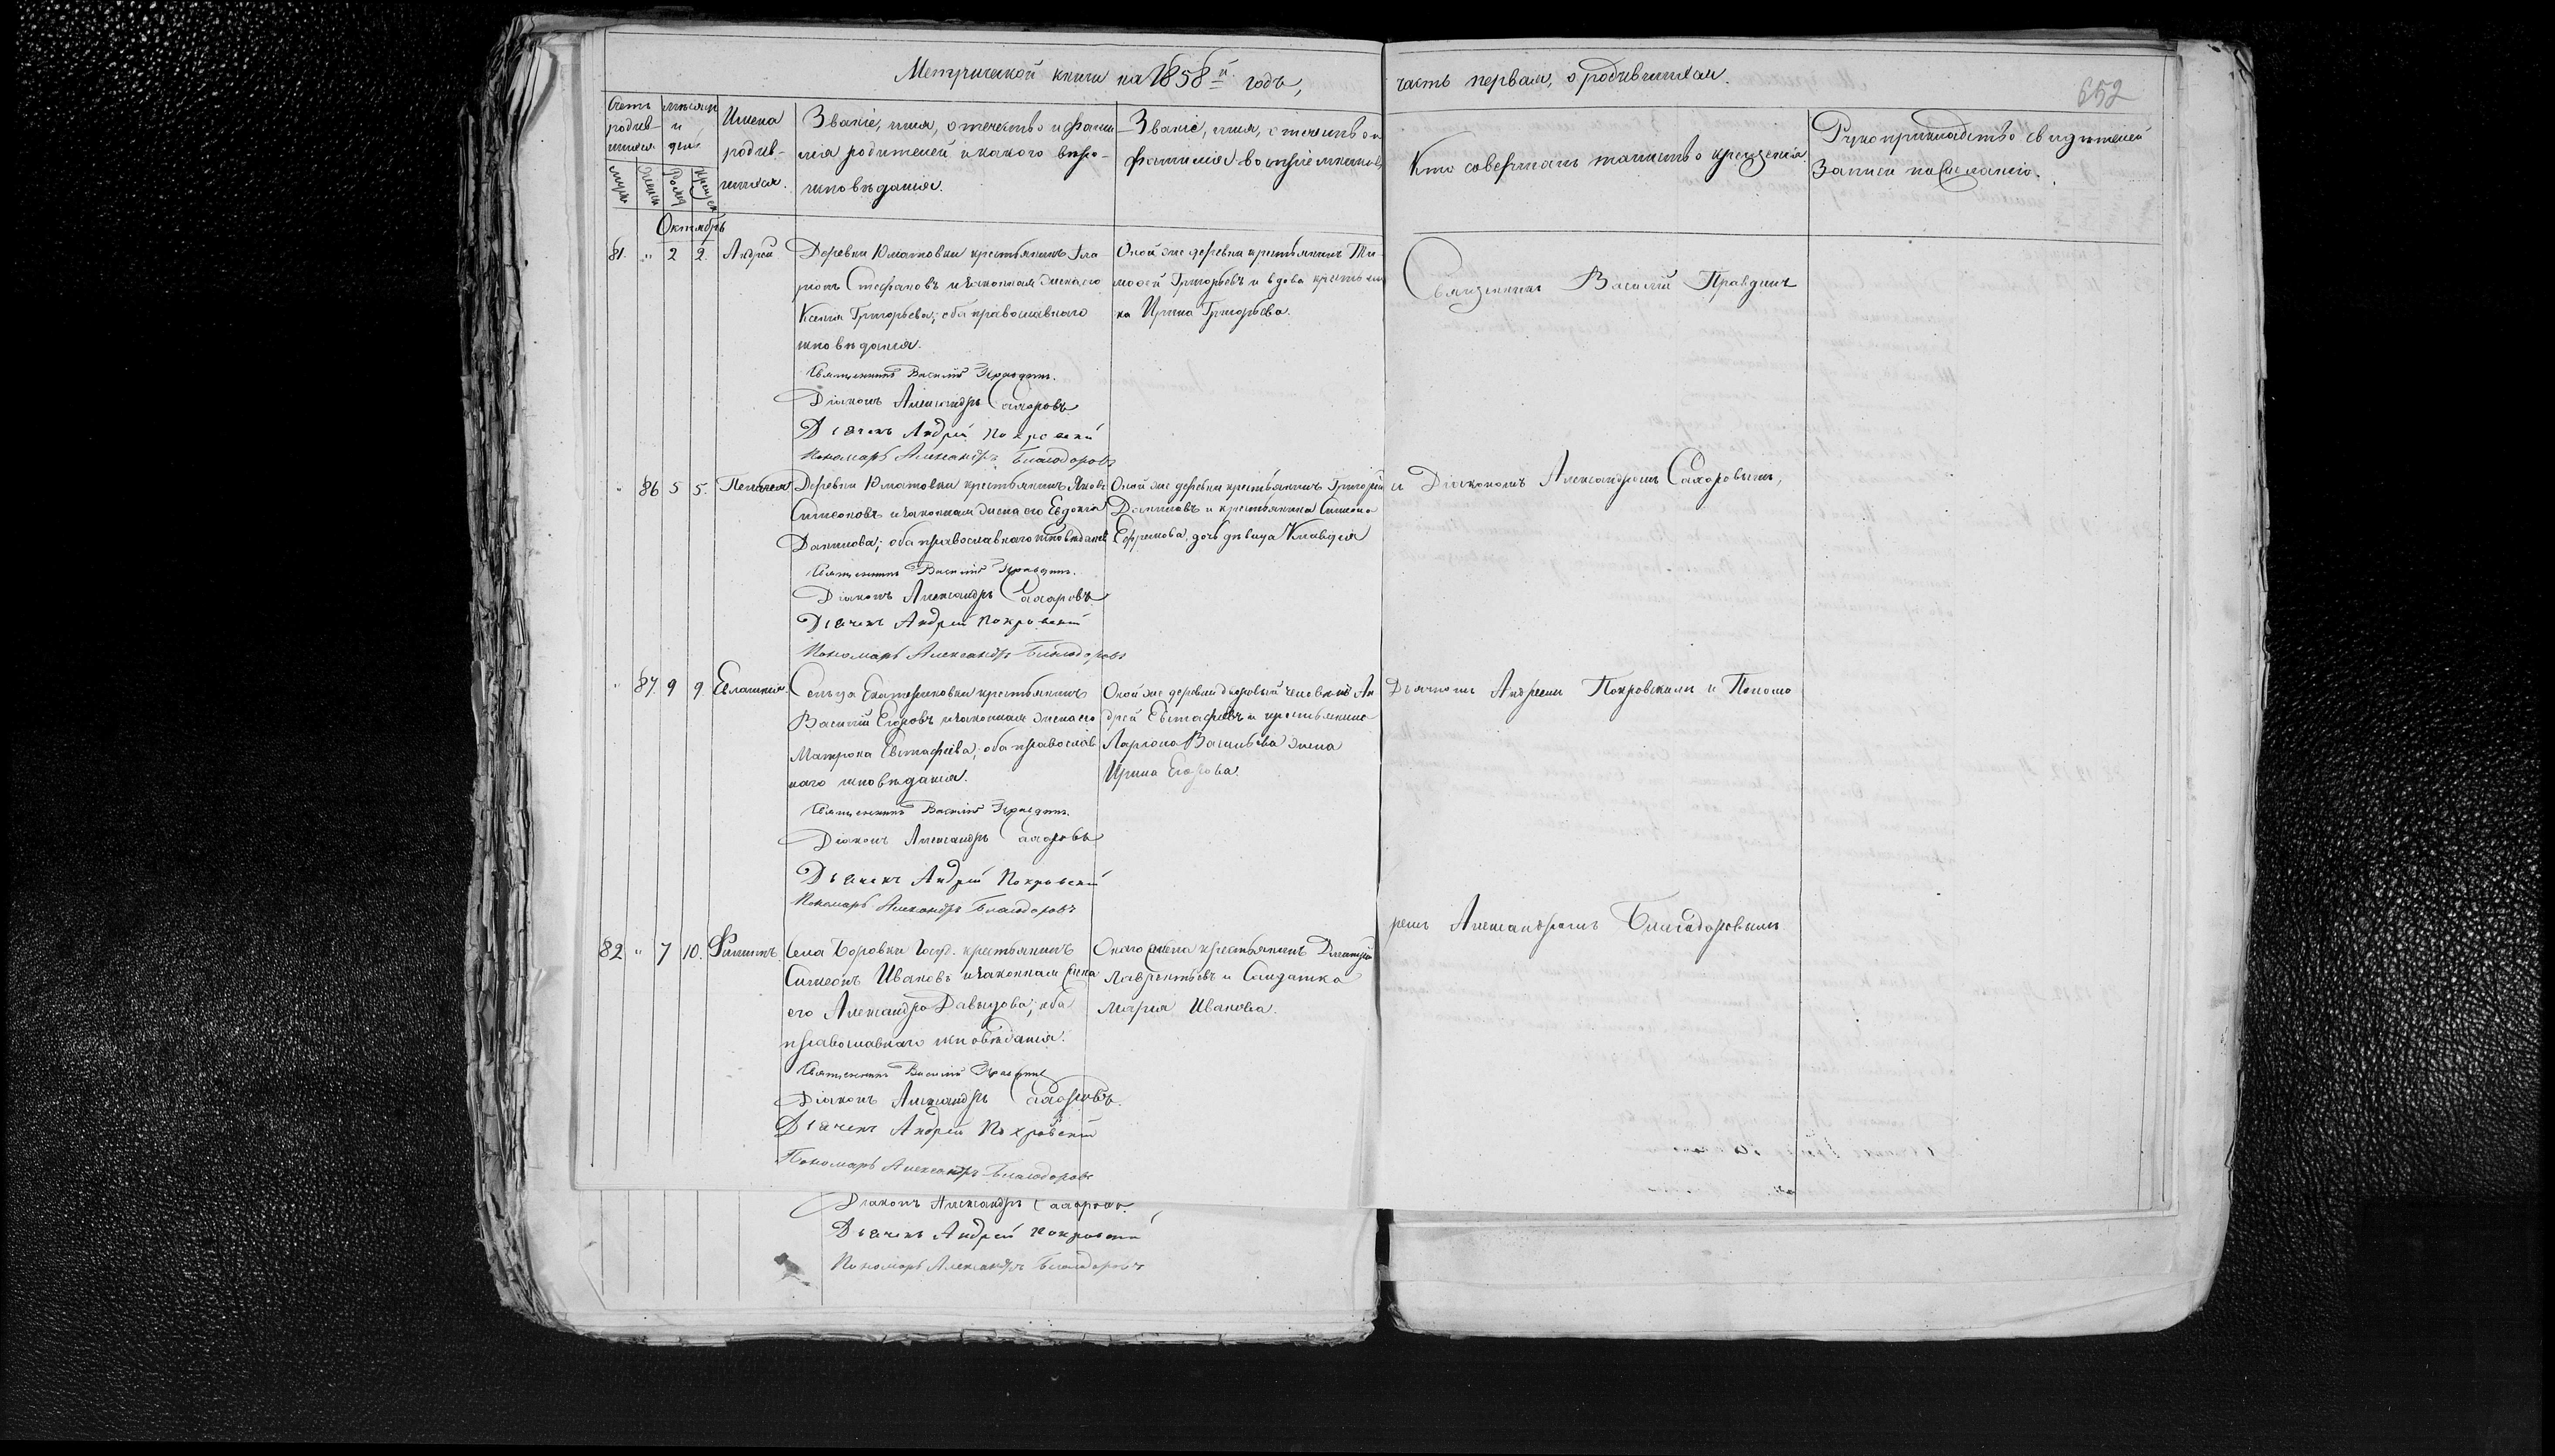 Метрической книги на 1858й годъ,
часть первая, о родившихся.
652
Счетъ родив-шихся
мужск. женск.
мѣсяцъ и день
рожд. крещен.
Имена родив-шихся.
Званіе, имя, отечество и фами-
лія родителей и какого вѣро-
исповѣданія.
Званіе, имя, отечество и
фамилія воспріемниковъ
Кто совершалъ таинство крещенія
Рукоприкладство свидѣтелей
записи по желанію.
Октябрь
81. " 2 2. Андрей
Деревни Юматовки крестьянинъ
Стефановъ и законная жена его
Ксенія Григорьева; оба православнаго
исповѣданія.
Священникъ Василій Правдинъ.
Діаконъ Александръ Сахаровъ
Дьячекъ Андрей Покровскій
Пономарь Александръ Благодаровъ
Оной же деревни крестьянинъ Ти-
мофей Григорьевъ и вдова крестьян
ка Ирина Григорьева.
Священникъ Василій Правдинъ
" 86 5 5. Пелагея
Деревни Юматовки крестьянинъ Яковъ
Симеоновъ и законная жена его Евдокія
Данилова; оба православнаго исповѣданія
Священникъ Василій Правдинъ.
Діаконъ Александръ Сахаровъ
Дьячекъ Андрей Покровскій
Пономарь Александръ Благодаровъ
Оной же деревни крестьянинъ Григорій
Даниловъ и крестьянина Симеона
Ефремова дочь дѣвица Клавдія
и Діакономъ Александромъ Сахаровымъ,
" 87. 9 9. Евлампія.
Сельца Екатериновки крестьянинъ
Василій Егоровъ и законная жена его
Матрона Евстафіева; оба православ
наго исповѣданія.
Священникъ Василій Правдинъ.
Діаконъ Александръ Сахаровъ
Дьячекъ Андрей Покровскій
Пономарь Александръ Благодаровъ
Оной же деревни дворовый человѣкъ Ан
дрей Евстафіевъ и крестьянина
Ларіона Васильева жена
Ирина Егорова.
Дьячкомъ Андреемъ Покровскимъ и Понома
82 " 7 10. Филиппъ.
Села Боровки Госуд. крестьянинъ
Симеонъ Ивановъ и законная жена
его Александра Давыдова; оба
православнаго исповѣданія.
Священникъ Василій Правдинъ
Діаконъ Александръ Сахаровъ.
Дьячекъ Андрей Покровскій
Пономарь Александръ Благодаровъ
Онаго села крестьянинъ Димитрій
Лаврентьевъ и Солдатка
Марія Иванова.
ремъ Александромъ Благодаровымъ
Діаконъ Александръ Сахаровъ.
Дьячекъ Андрей Покровскій
Пономарь Александръ Благодаровъ